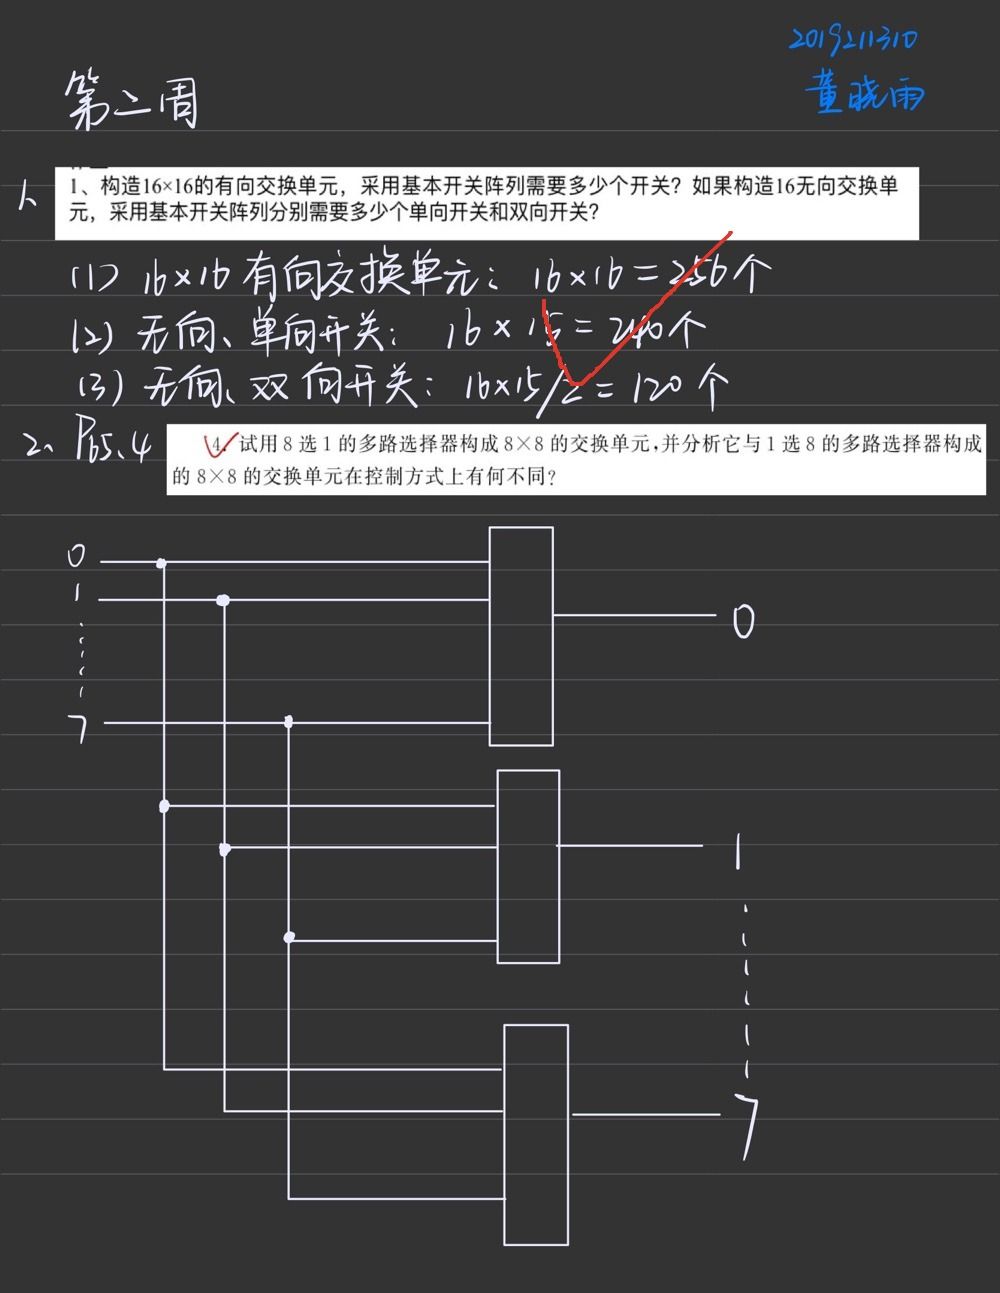 2019211310
董晓雨
第二周
1、
1、构造16×16的有向交换单元，采用基本开关阵列需要多少个开关？如果构造16无向交换单
元，采用基本开关阵列分别需要多少个单向开关和双向开关？
(1) 16×16有向交换单元： 16×16=256个
(2) 无向、单向开关： 16×15=240个
(3) 无向、双向开关： 16×15/2=120个
2、P65、4
4. 试用8选1的多路选择器构成8×8的交换单元,并分析它与1选8的多路选择器构成
的8×8的交换单元在控制方式上有何不同?
0
1
7
0
1
7